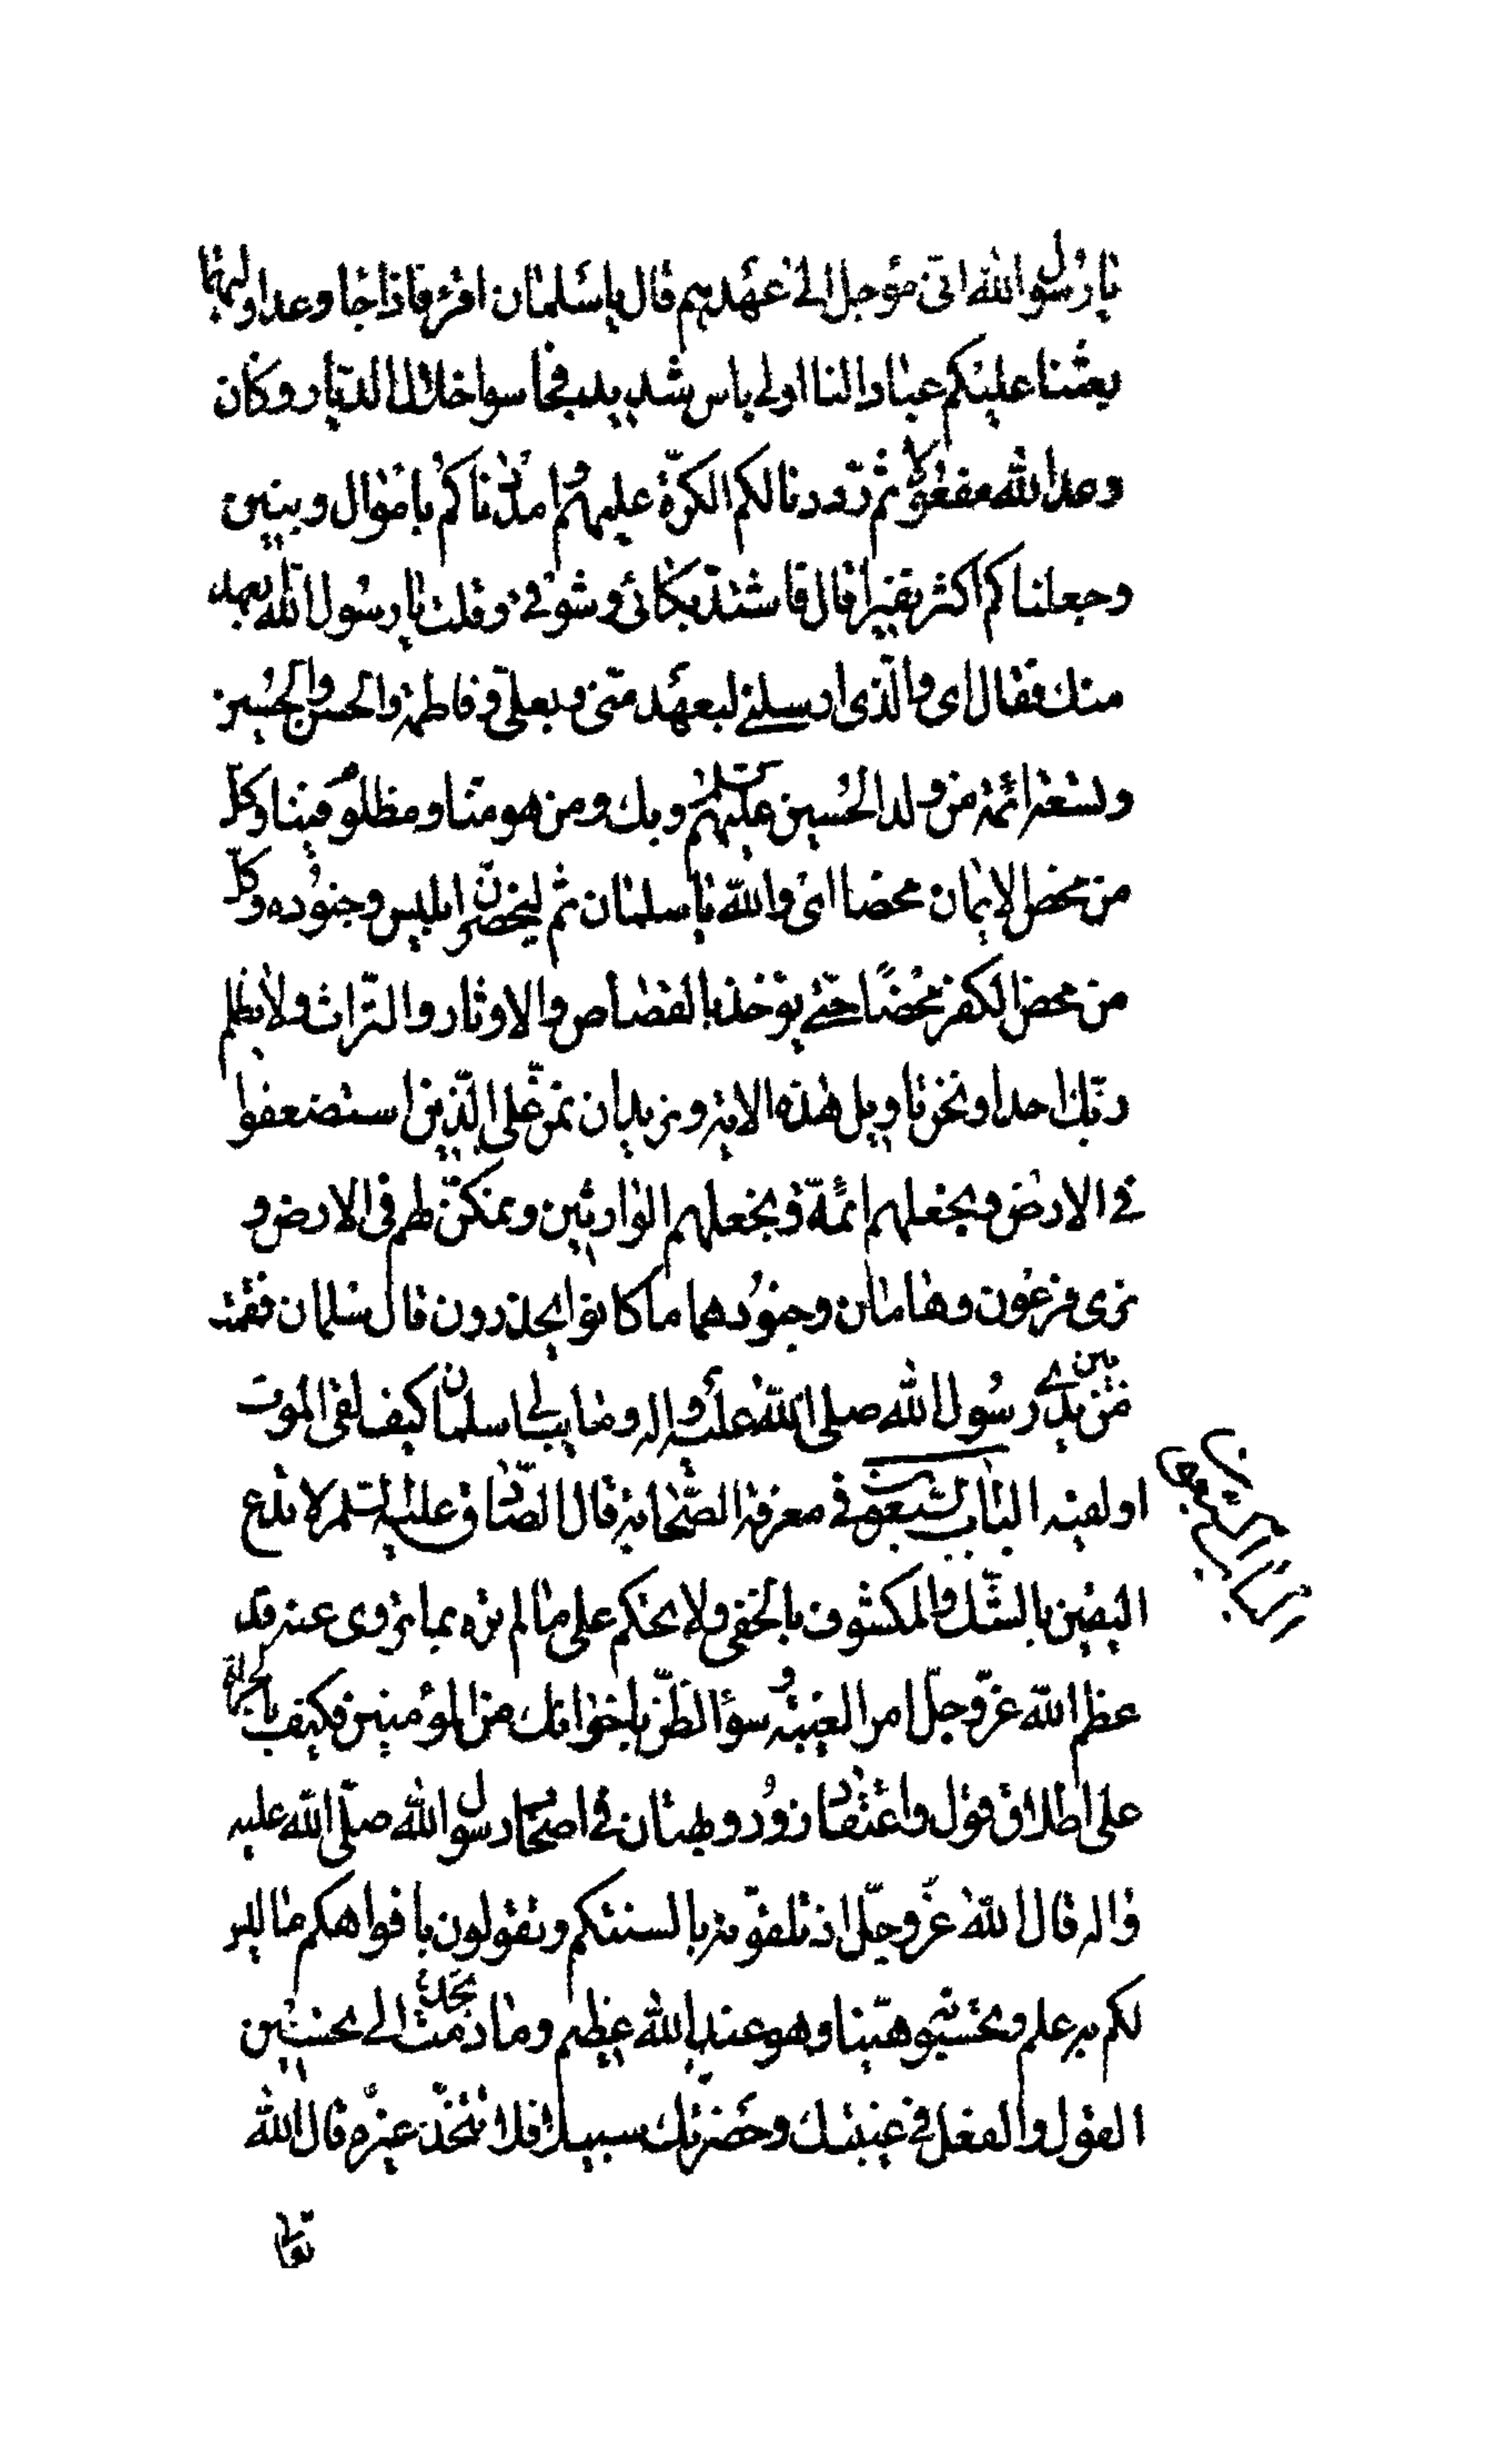 يا رسول الله انى مؤجل الى عهدهم قال يا سلمان اقرء فاذا جاء وعد اوليهما
بعثنا عليكم عبادا لنا اولى باس شديد فجاسوا خلال الديار وكان
وعد الله مفعولا ثم رددنا لكم الكرة عليهم وامددناكم باموال وبنين
وجعلناكم اكثر نفيرا قال فاشتد بكائى وشوقى وقلت يا رسول الله بعهد
منك فقال اى والذى ارسلنى لبعهد منى وبعلى وفاطمة والحسن والحسين
وتسعة ائمة من ولد الحسين عليهم السلام وبك ومن هو منا ومظلوم فينا وكل
من محض الايمان محضا اى والله يا سلمان ثم ليحضرن ابليس وجنوده وكل
من محض الكفر محضا حتى يؤخذ بالقصاص والاوتار والتراث ولا يظلم
ربك احدا ونحن تاويل هذه الاية ونريد ان نمن على الذين استضعفوا
فى الارض ونجعلهم ائمة ونجعلهم الوارثين ونمكن لهم فى الارض و
نرى فرعون وهامان وجنودهما ما كانوا يحذرون قال سلمان فقمت
من بين يدى رسول الله صلى الله عليه واله وما يبالى سلمان كيف لقى الموت
او لقيه الباب السبعون فى معرفة الصحابة قال الصادق عليه السلم لا تدع
اليقين بالشك والمكشوف بالخفى ولا تحكم على ما لم تره بما تروى عنه قد
عظم الله عز وجل امر الغيبة وسوء الظن باخوانك من المؤمنين فكيف بالجرأة
على اطلاق قول واعتقاد زور وبهتان فى اصحاب رسول الله صلى الله عليه
واله قال الله عز وجل اذ تلقونه بالسنتكم وتقولون بافواهكم ما ليس
لكم به علم وتحسبونه هينا وهو عند الله عظيم وما دمت تجد الى تحسين
القول والفعل فى غيبتك وحضرتك سبيلا فلا تتخذ غيره قال الله
تعالى
الباب السبعون